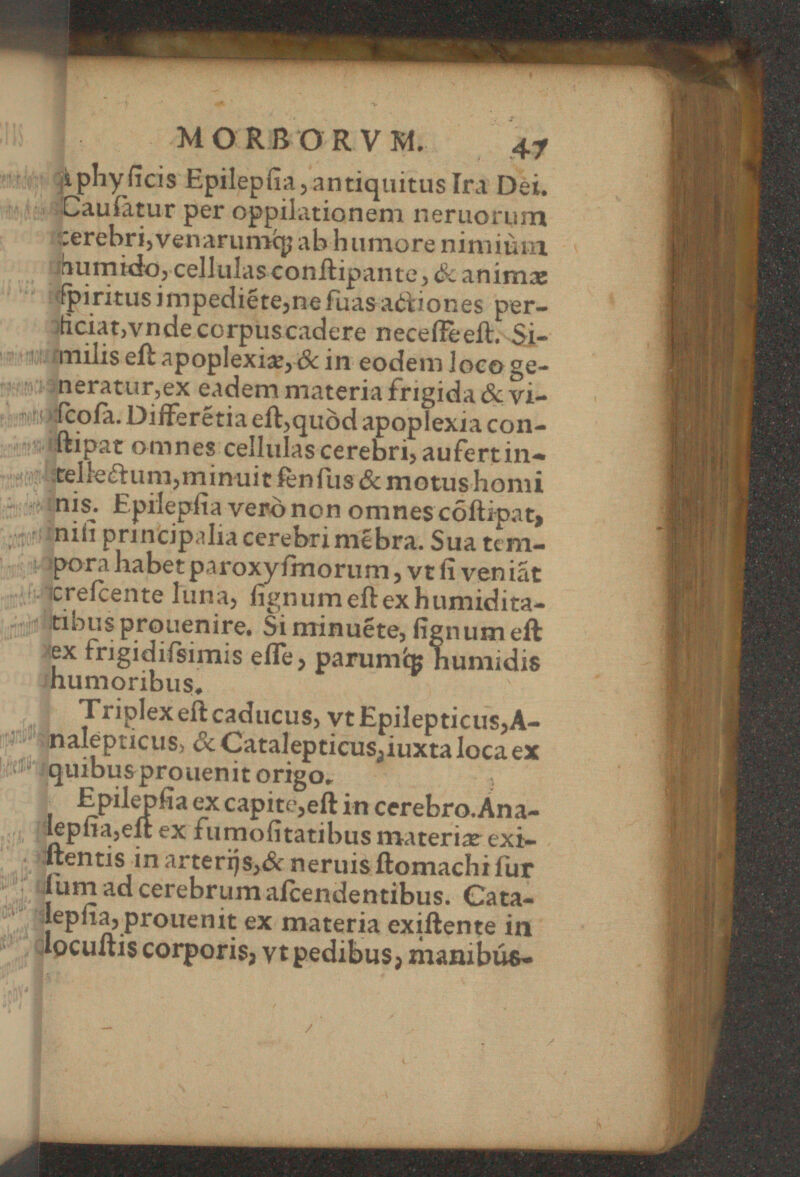 MORBORVM. 47
à phyſicis Epilepſia, antiquitus Ira Dei.
Cauſatur per oppilationem neruorum
cerebri, venarumq́; ab humore nimiùm
humido, cellulas conſtipante, & animæ
ſpiritus impediẽte, ne ſuas actiones per-
ficiat, vnde corpus cadere neceſſe eſt. Si-
milis eſt apoplexiæ, & in eodem loco ge-
neratur, ex eadem materia frigida & vi-
ſcoſa. Differẽtia eſt, quòd apoplexia con-
ſtipat omnes cellulas cerebri, aufert in-
tellectum, minuit ſenſus & motus homi
nis. Epilepſia verò non omnes cõſtipat,
niſi principalia cerebri mẽbra. Sua tem-
pora habet paroxyſmorum, vt ſi veniãt
creſcente luna, ſignum eſt ex humidita-
tibus prouenire. Si minuẽte, ſignum eſt
ex frigidiſsimis eſſe, parumq́; humidis
humoribus.
Triplex eſt caducus, vt Epilepticus, A-
nalepticus, & Catalepticus, iuxta loca ex
quibus prouenit origo.
Epilepſia ex capite, eſt in cerebro. Ana-
lepſia, eſt ex fumoſitatibus materiæ exi-
ſtentis in arterijs, & neruis ſtomachi ſur
ſum ad cerebrum aſcendentibus. Cata-
lepſia, prouenit ex materia exiſtente in
locuſtis corporis, vt pedibus, manibús-